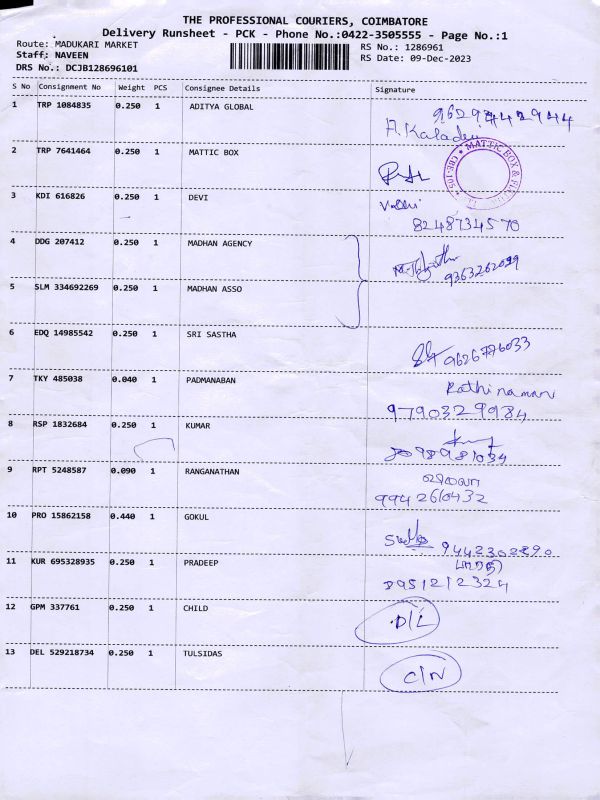 THE PROFESSIONAL COURIERS, COIMBATORE
Delivery Runsheet - PCK - Phone No.:0422-3505555 - Page No.:1
Route: MADUKARI MARKET
RS No.: 1286961
Staff: NAVEEN
RS Date: 09-Dec-2023
DRS No.: DCJB128696101
S No Consignment No Weight PCS Consignee Details Signature
1 TRP 1084835 0.250 1 ADITYA GLOBAL
A. Kaladevi
2 TRP 7641464 0.250 1 MATTIC BOX
MATTIC BOX &
3 KDI 616826 0.250 1 DEVI
8248734570
4 DDG 207412 0.250 1 MADHAN AGENCY
5 SLM 334692269 0.250 1 MADHAN ASSO
6 EDQ 14985542 0.250 1 SRI SASTHA
9626776033
7 TKY 485038 0.040 1 PADMANABAN
Rathinaman
9790329984
8 RSP 1832684 0.250 1 KUMAR
9 RPT 5248587 0.090 1 RANGANATHAN
9942610432
10 PRO 15862158 0.440 1 GOKUL
9442302890
11 KUR 695328935 0.250 1 PRADEEP
8951212324
12 GPM 337761 0.250 1 CHILD
D/L
13 DEL 529218734 0.250 1 TULSIDAS
C/N